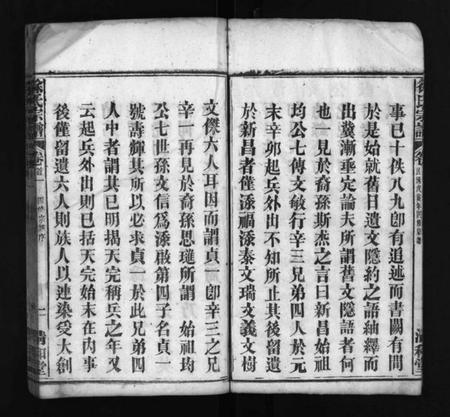 事已十佚八九卽有追述而書闕有間
於是始就舊日遺文隱約之語紬繹而
出冀漸垂定論夫所謂舊文隱語者何
也一見於裔孫斯杰之言曰新昌始祖
均公七傳文敏行辛三兄弟四人於元
末辛卯起兵外出不知所止其後留遺
於新昌者僅溙福溙泰文瑞支義文樹
文傑六人耳因而謂貞一卽辛三之兄
辛一再見於裔孫思璡所謂 始祖均
公七世孫文信爲溙啟第四子名貞一
號壽輝其所以必求貞一於此兄弟四
人中者謂其已明揭天完稱兵之年又
云起兵外出則已括天完始末在內事
後僅留遺六人則族人以連染受大創